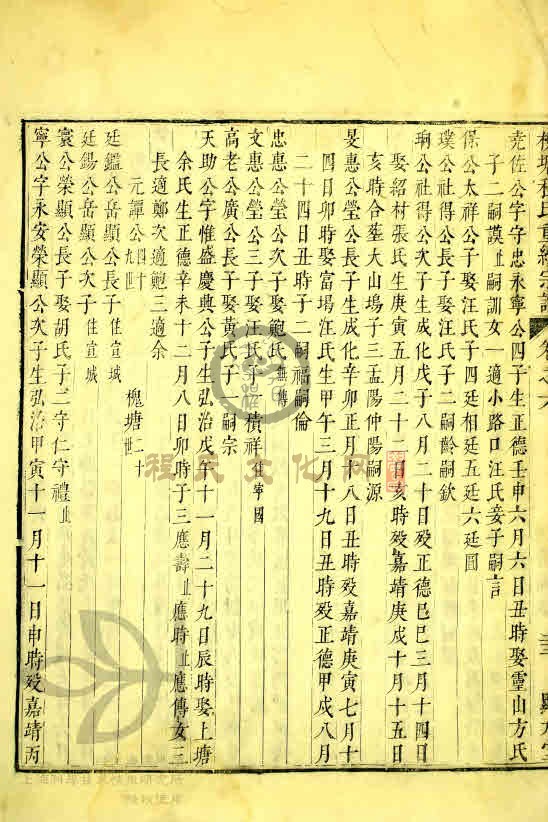 堯佐公字守忠永寧公四子生正德壬申六月六日丑時娶靈山方氏
子二嗣謨止嗣訓女一適小路口汪氏妾子嗣言
保公太祥公子娶汪氏子四廷相廷五廷六廷圓
璞公社得公長子娶汪氏子二嗣齡嗣欽
珦公社得公次子生成化戊子八月二十日歿正德己巳三月十四日
娶紹材張氏生庚寅五月二十二日亥時歿嘉靖庚戌十月十五日
亥時合塟大山塢子三孟陽仲陽嗣源
旻惠公瑩公長子生成化辛卯正月十八日丑時歿嘉靖庚寅七月十
四日卯時娶富堨汪氏生甲午三月十九日丑時歿正德甲戌八月
二十四日丑時子二嗣福嗣倫
忠惠公瑩公次子娶鮑氏無傳
文惠公瑩公三子娶汪氏子積祥住寧國
高老公廣公長子娶黃氏子一嗣宗
天助公字惟盛慶典公子生弘治戊午十一月二十九日辰時娶上塘
余氏生正德辛未十二月八日卯時子三應壽止應時止應傳女三
長適鄭次適鮑三適余
元譚公四十九世 槐塘二十世
廷鑑公岳顯公長子住宣城
廷錫公岳顯公次子住宣城
寰公榮顯公長子娶胡氏子二守仁守禮止
寧公字永安榮顯公次子生弘治甲寅十一月十一日申時歿嘉靖丙
程氏文化网